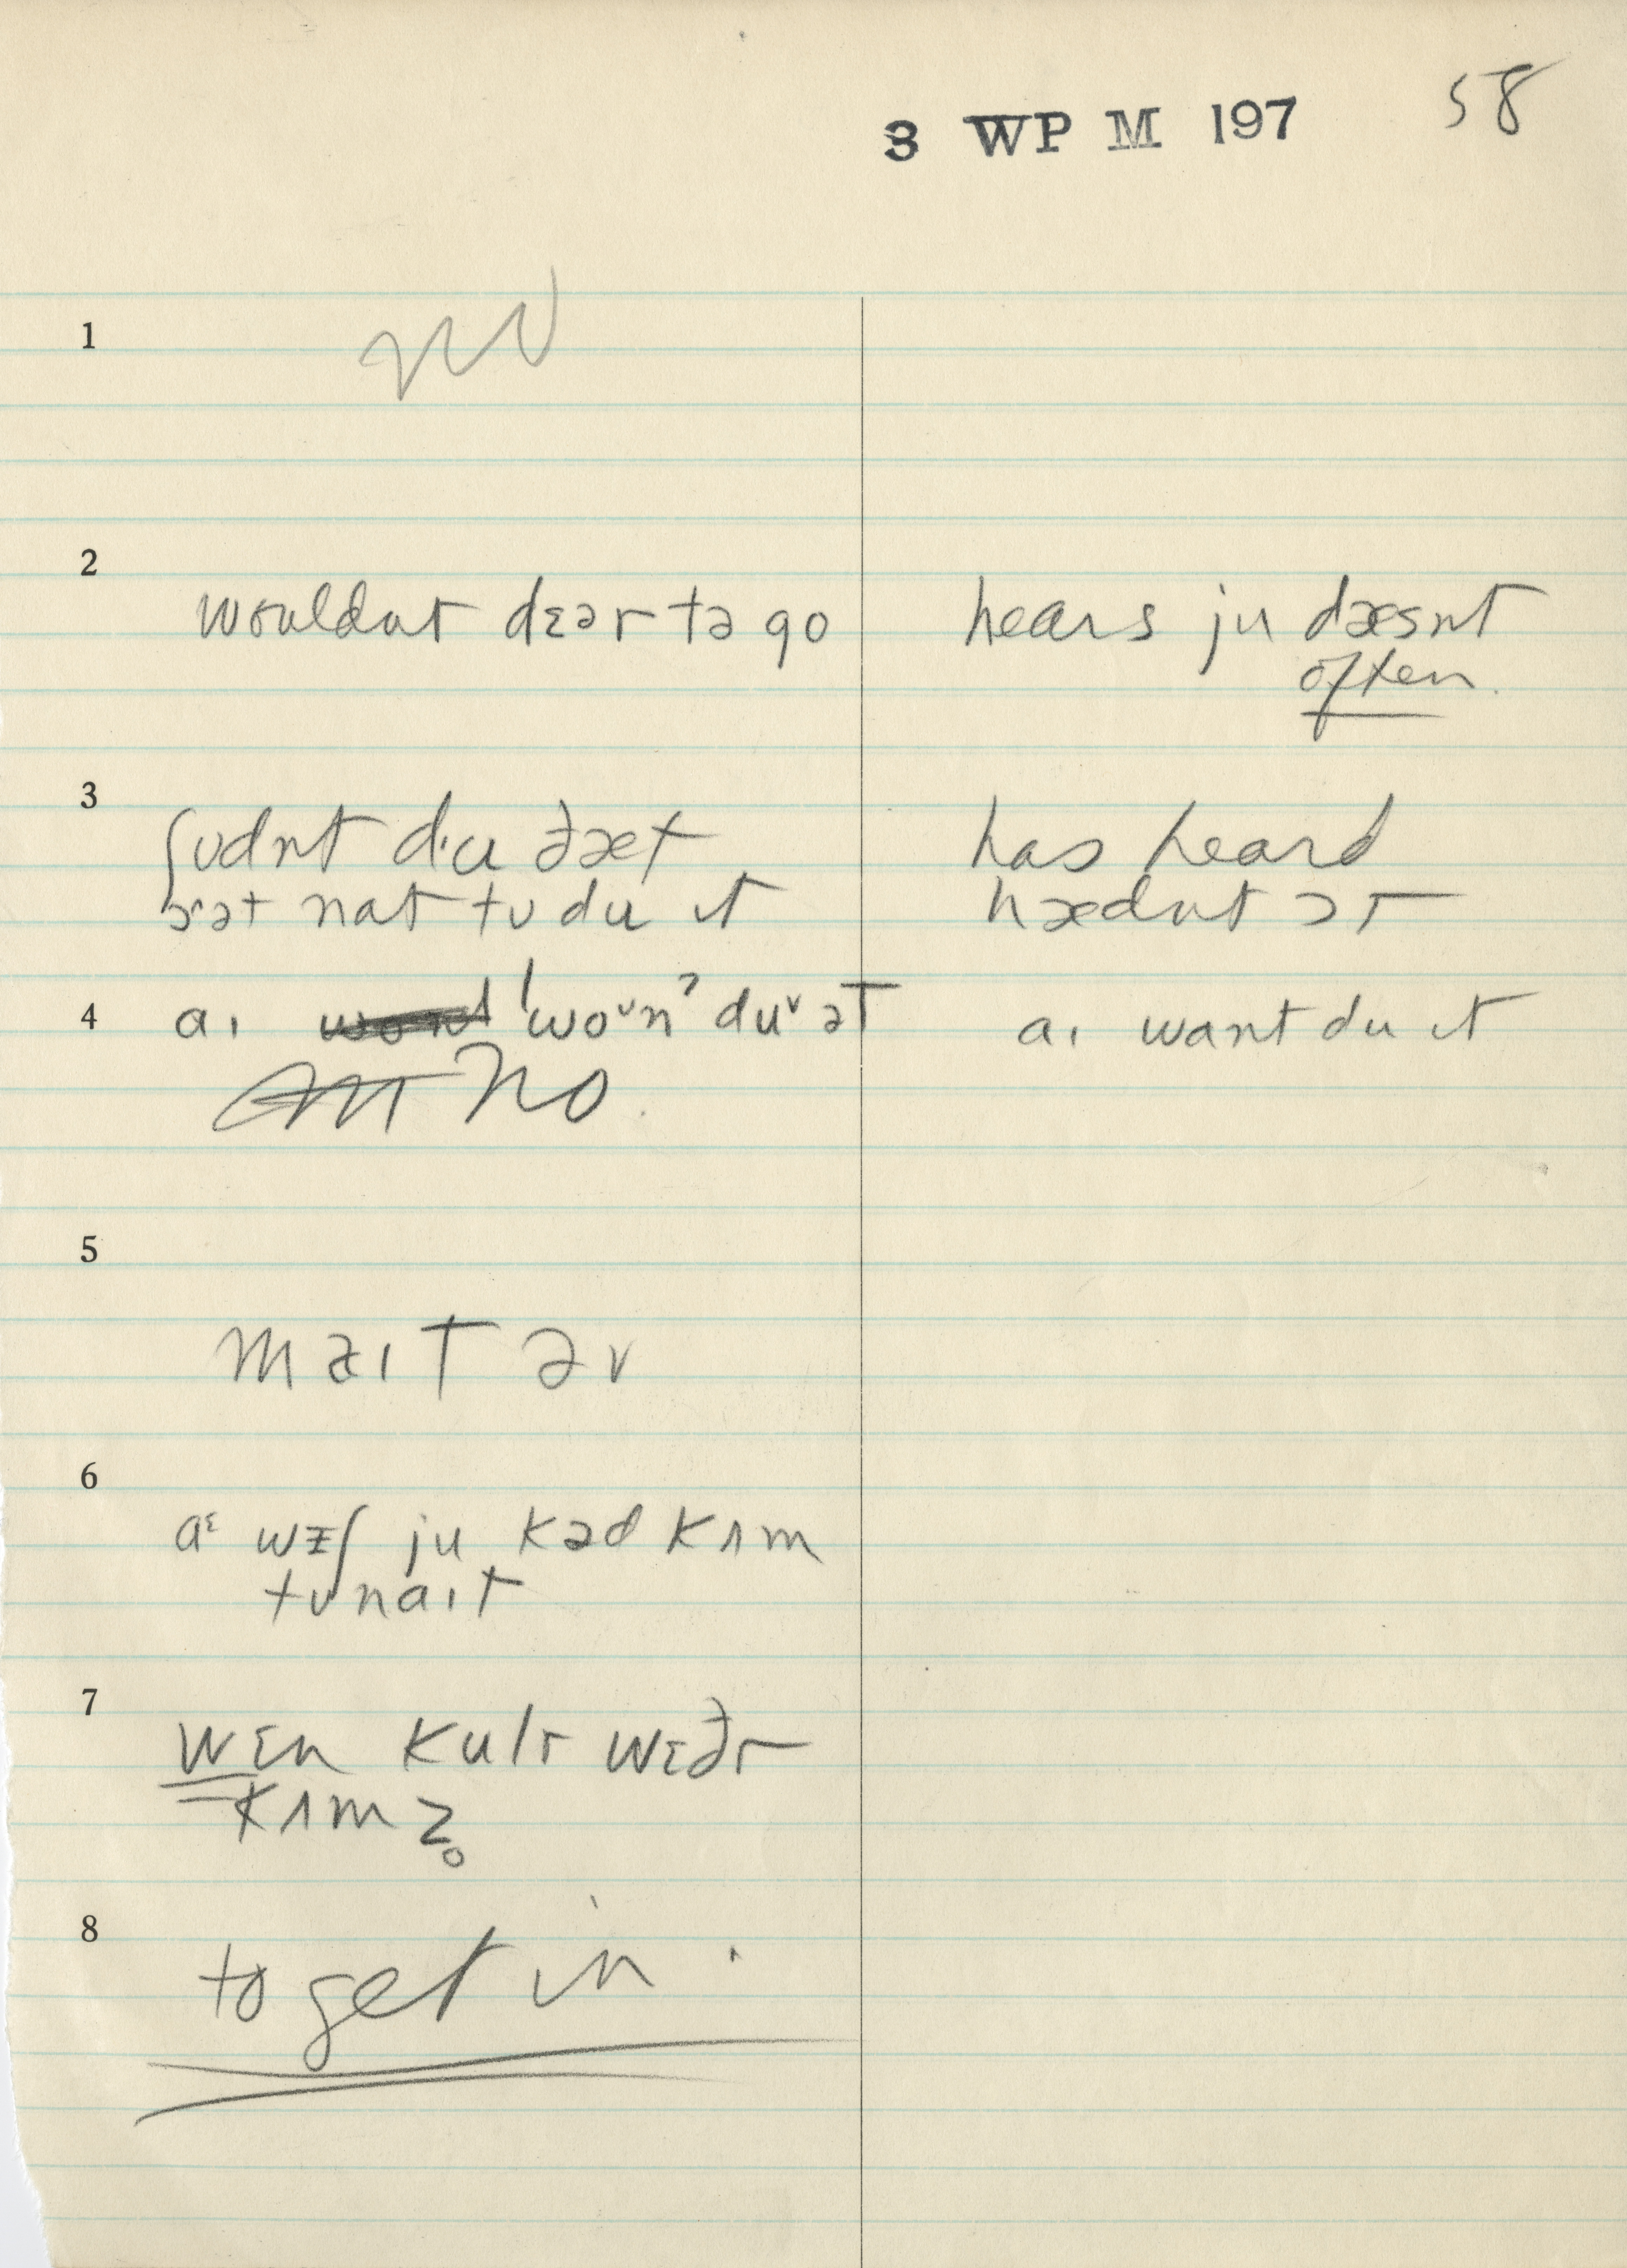 3 WP M 197 58
1 no
2 wouldnt dɛər tə go
hears ju dæsnt
often.
3 ʃʊdnt du ðæt
nat tʊ du ɪt
has heard
4 aɪ 'woᵛnˀ duᵛ əT
aɪ want du ɪt
no.
5 mɜɪT əv
6 aᵋ wɪʃ ju kəd kʌm
tʊnaɪt
7 wɛn kulr wɛðr
kʌm?
8 to get in.